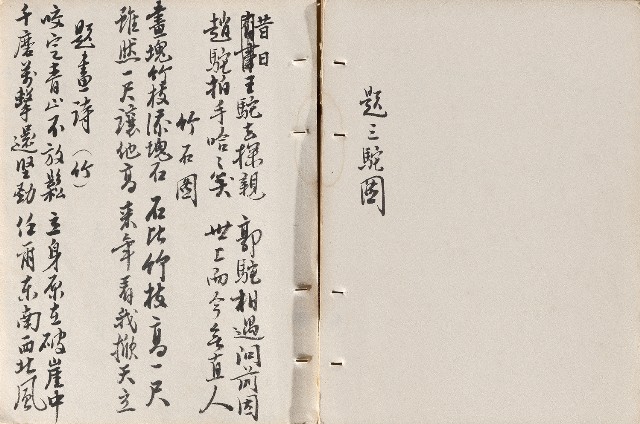 題三駝圖
昔日王駝去探親 郭駝相遇問前因
趙駝拍手哈〻笑 世上而今無直人
竹石圖
畫塊竹枝添塊石 石比竹枝高一尺
雖然一尺讓他高 來年看我掀天立
題畫詩（竹）
咬定青山不放鬆 立身原在破崖中
千磨萬擊還堅勁 任爾东南西北風